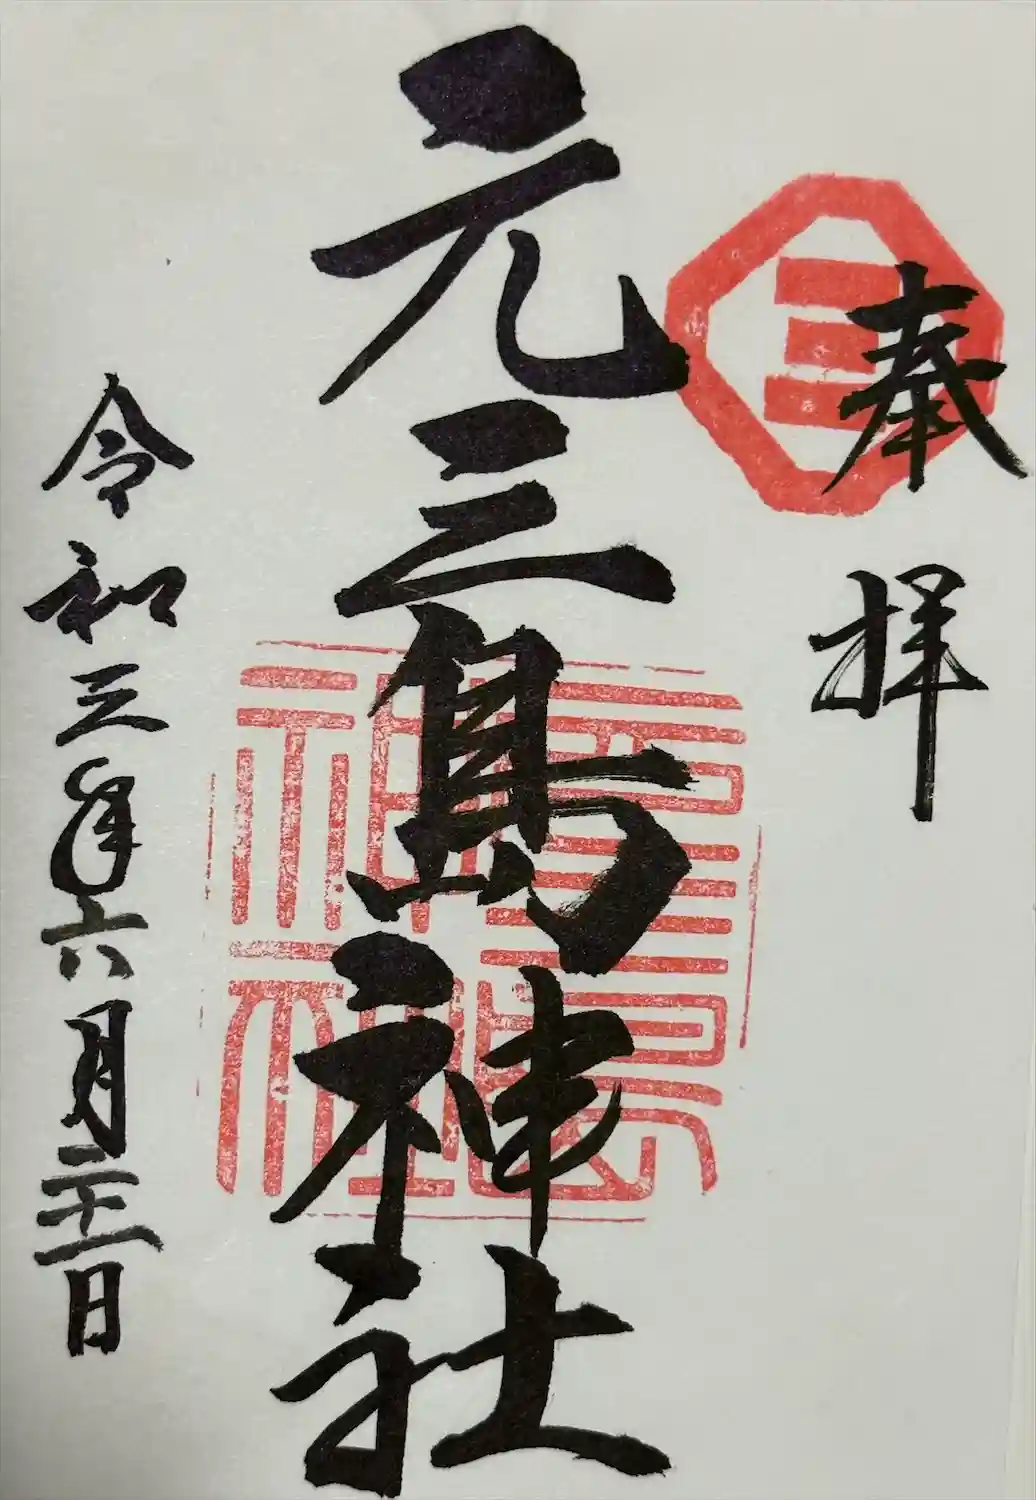 奉拝
三
元三島神社
元三島
神社
令和三年六月二十一日